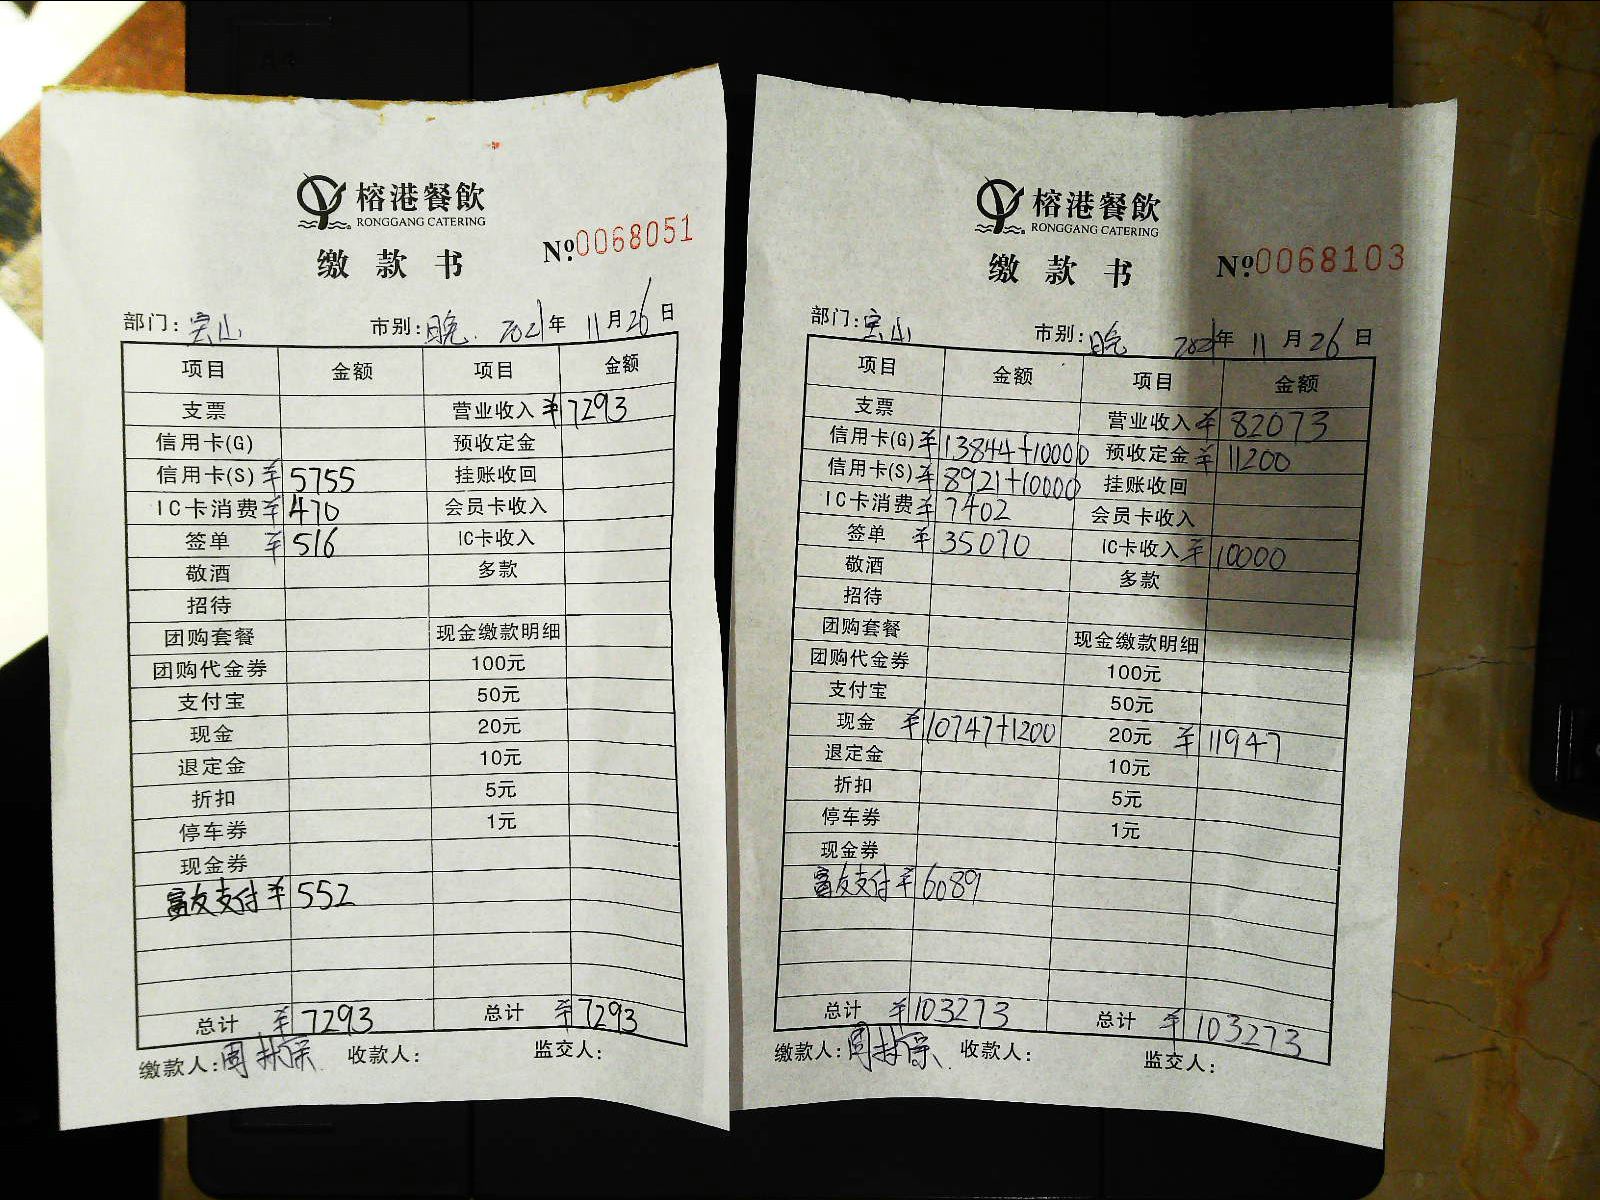 榕港餐飲
RONGGANG CATERING
缴款书
№:0068051
部门:宝山 市别:晚 2021年11月26日
项目 金额 项目 金额
支票 营业收入 ¥7293
信用卡(G) 预收定金
信用卡(S) ¥5755 挂账收回
IC卡消费 ¥470 会员卡收入
签单 ¥516 IC卡收入
敬酒 多款
招待
团购套餐 现金缴款明细
团购代金券 100元
支付宝 50元
现金 20元
退定金 10元
折扣 5元
停车券 1元
现金券
富友支付 ¥552
总计 ¥7293 总计 ¥7293
缴款人:周 收款人: 监交人:
榕港餐飲
RONGGANG CATERING
缴款书
№:0068103
部门:宝山 市别:晚 2021年11月26日
项目 金额 项目 金额
支票 营业收入 ¥82073
信用卡(G) ¥13844+10000 预收定金 ¥11200
信用卡(S) ¥8921+10000 挂账收回
IC卡消费 ¥7402 会员卡收入
签单 ¥35070 IC卡收入 ¥10000
敬酒 多款
招待
团购套餐 现金缴款明细
团购代金券 100元
支付宝 50元
现金 ¥10747+1200 20元 ¥11947
退定金 10元
折扣 5元
停车券 1元
现金券
富友支付 ¥6089
总计 ¥103273 总计 ¥103273
缴款人:周 收款人: 监交人: